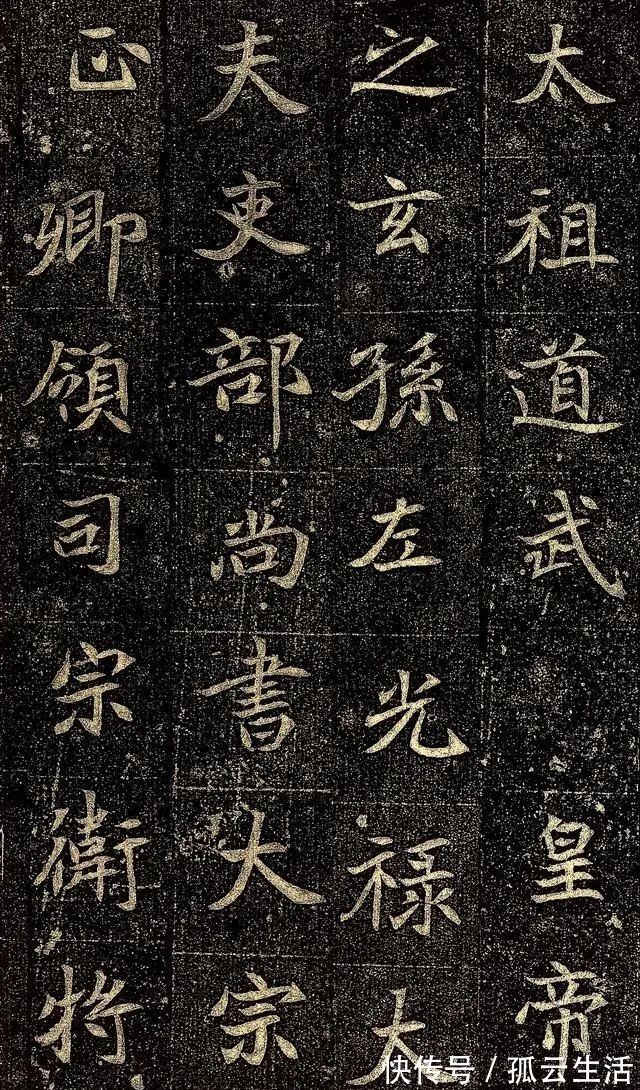 太祖道武皇帝
之玄孫左光禄大
夫吏部尚書大宗
正卿領司宗衛将
快传号/孤云生活